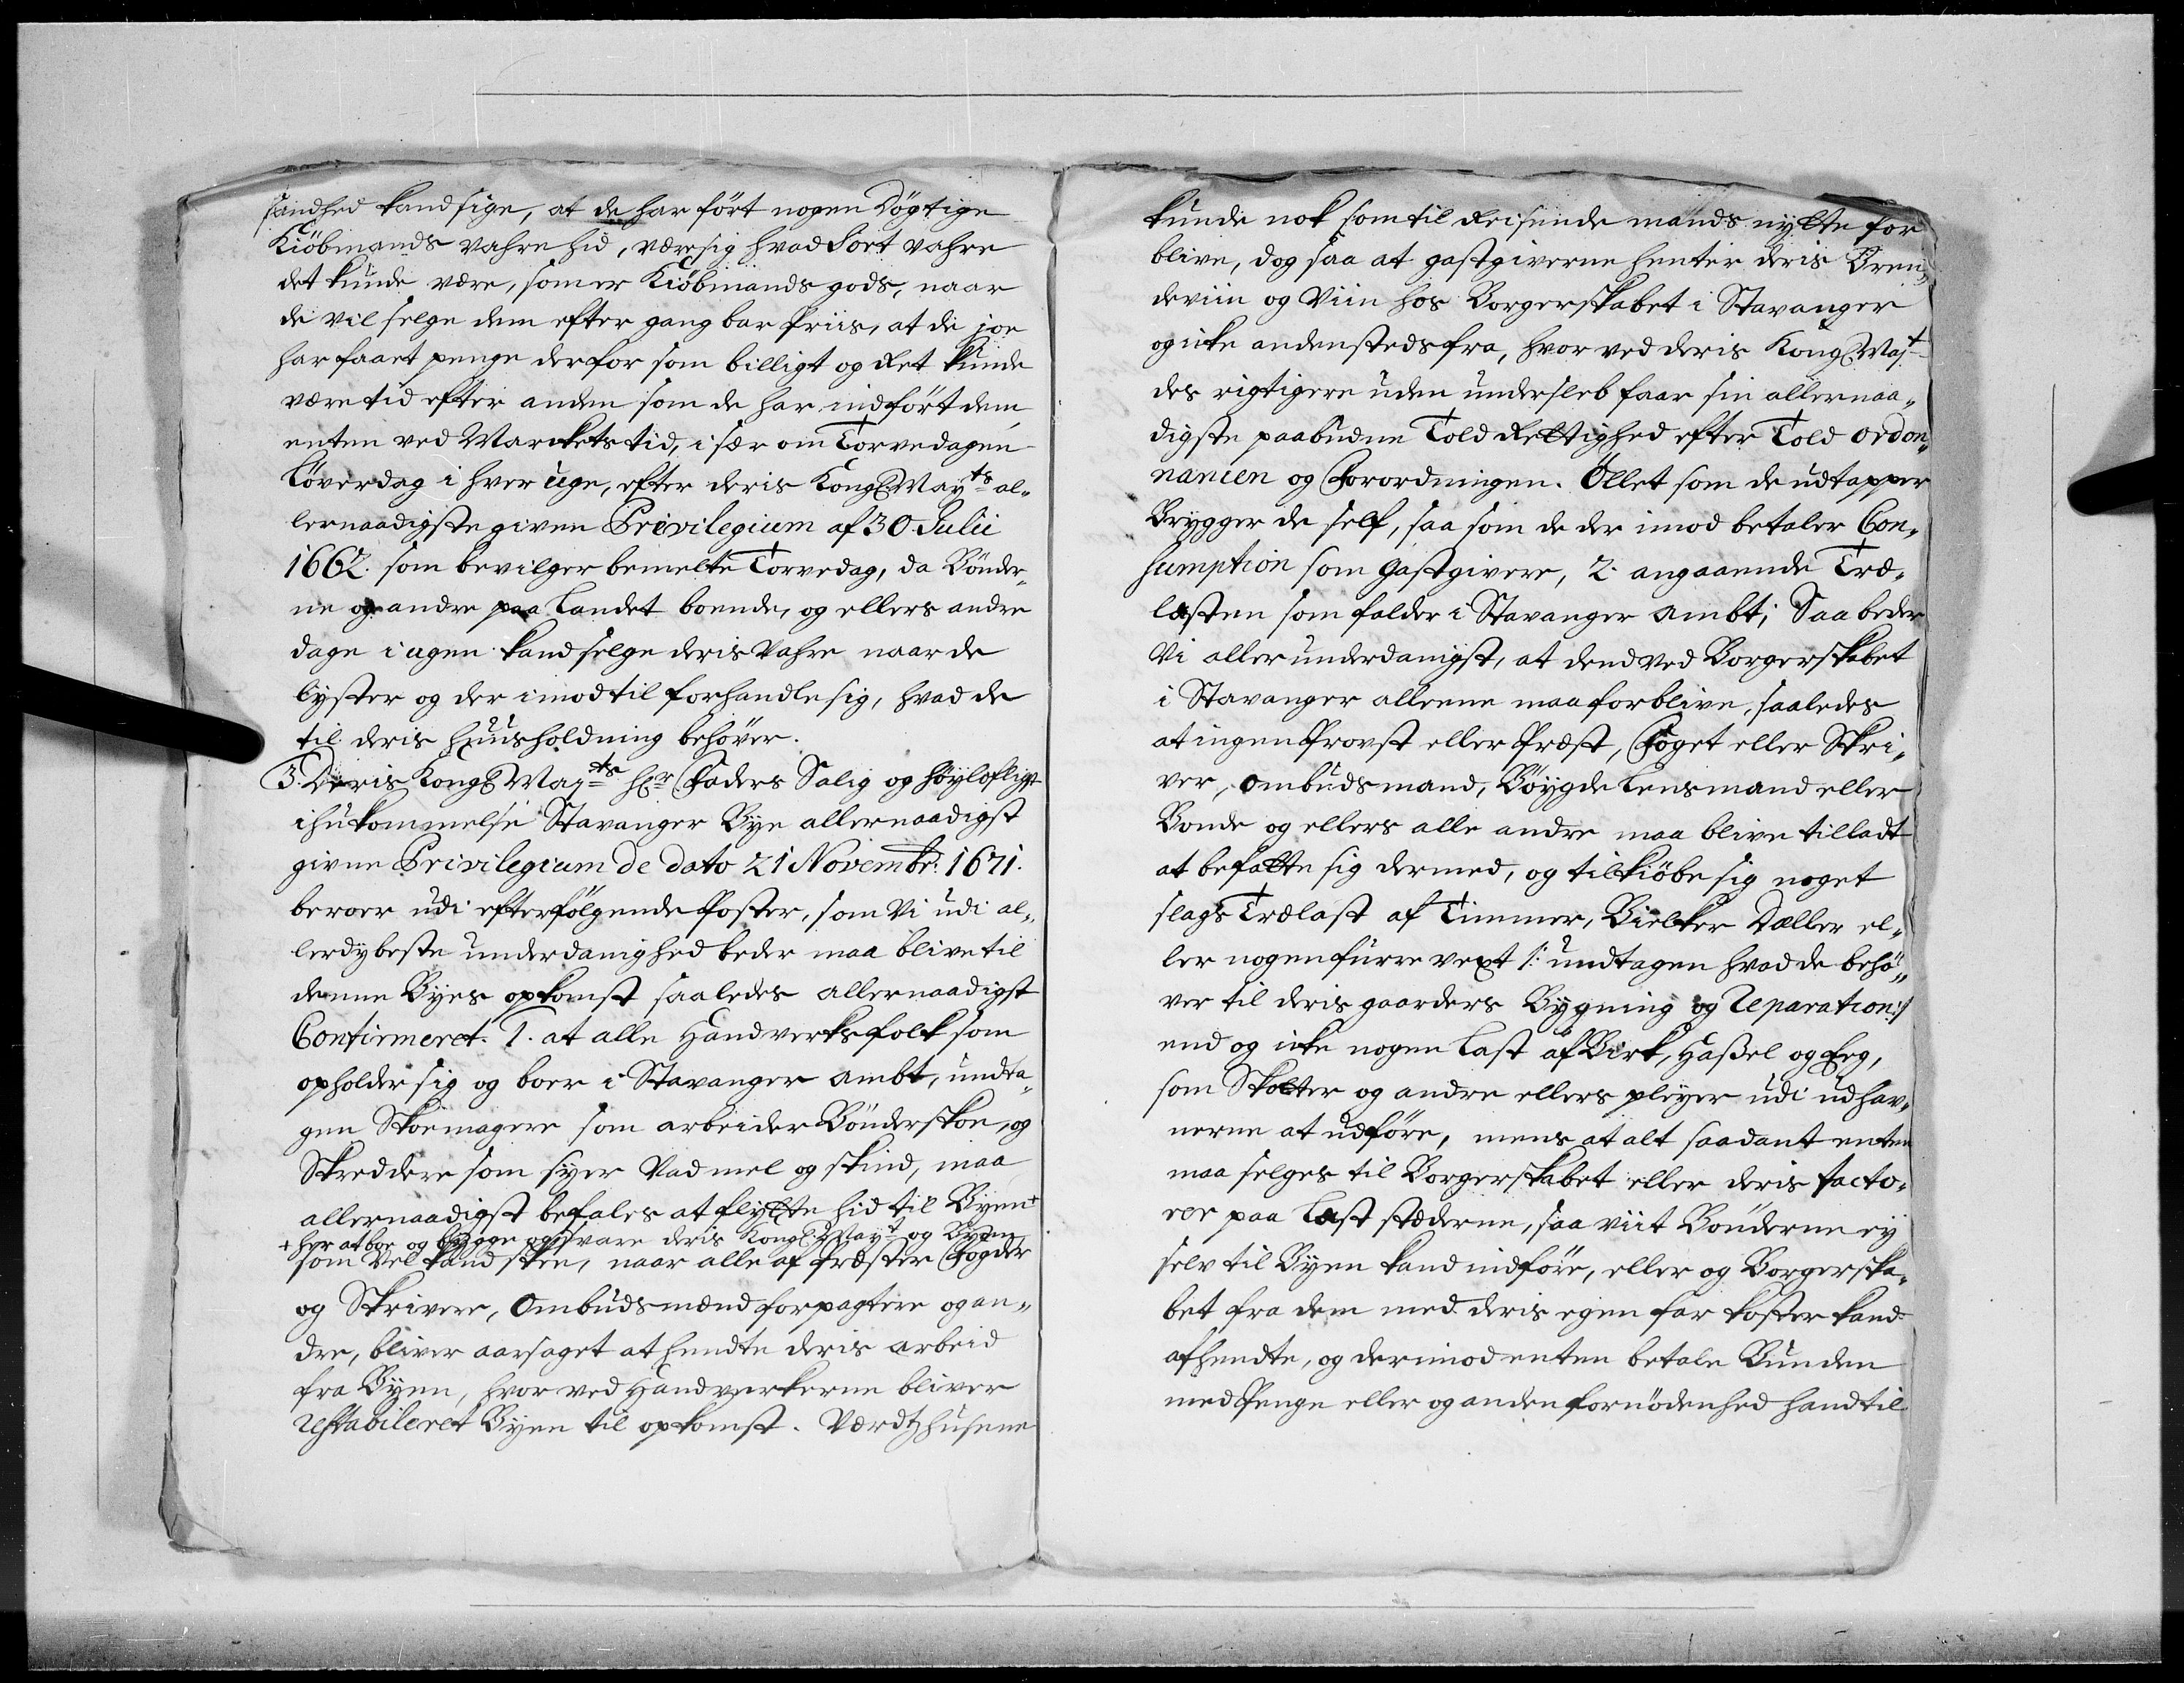 sandhed kand sige, at de har ført nogen Døgtige
Kiöbmands vahre hid, være sig hvad Sort vahre
det kunde være, som er Kiöbmands gods, naar
de vil selge dem efter gangbar Priis, at de joe
har faaet penge derfor som billigt og Ret kunde
være tid efter anden som de har indført dem
enten ved Marckets tid, i sær om Torvedagen
Löverdag i hver uge, efter deris Kongl Mayts al„
lernaadigste given Privilegium af 30 Julii
1662. som bevilger bemelte Torvedag, da Bønder„
ne og andre paa Landet boende, og ellers andre
dage i ugen kand selge deris Vahre naar de
lyster og der imod tilforhandle sig, hvad de
til deris huusholdning behøver.
3. Deris Kongl Mayts Hr Faders Salig og höyloflige
ihukommelse Stavanger Bye allernaadigst
givne Privilegium de dato 21 Novembr: 1671.
beroer udi efterfølgende Poster, som Vi udi al„
lerdybeste underdanighed beder maa blive til
denne Byes opkomst saaledes allernaadigst
Confirmeret. 1. at alle Handverksfolk som
opholder sig og boer i Stavanger Ambt, undta„
gen Skoemagere som arbeider Bønderskoe, og
Skreddere som syer Vadmel og skind, maa
allernaadigst befales at flytte hid til Byen+
+ her at boe og bygge og svare deris Kongl Mayt og Byen
som Vel kand skee, naar alle af Præster Fogder
og Skrivere, Ombudsmænd forpagtere og an„
dre, bliver aarsaget at hendte deris arbeid
fra Byen, hvor ved Handverkerne bliver
restabileret Byen til opkomst. Værdtzhusene
kunde nok som til Reisende mands nytte for
blive, dog saa at gastgiverne henter deris Bren„
deviin og Viin hos Borgerskabet i Stavanger
og icke andenstedsfra, hvor ved deris Kongl Mayt
des rigtigere uden undersleb faar sin allernaa„
digste paabudne Told Rettighed efter Told ordon„
nancen og Forordningen. Øllet som de udtapper
Brygger de self, saa som de der imod betaler Con„
sumption som gastgivere, 2. angaaende Træ„
lasten som falder i Stavanger Ambt; Saa beder
Vi allerunderdanigst, at dend ved Borgerskabet
i Stavanger alleene maa forblive, saaledes
at ingen Provst eller Præst, Foget eller Skri„
ver, ombudsmand, Bøygde Lensmand eller
Bonde og ellers alle andre maa blive tilladt
at befatte sig dermed, og tilkiöbe sig noget
slags Trælast af Timmer, Bielker Dæller el„
ler nogen furre vext /: undtagen hvad de behø„
ver til deris gaarders Bygning og Reparation:/
end og icke nogen Last af Birk, Hassel og Eeg,
som Skotter og andre ellers pleyer udi udhav„
nerne at udføre, mens at alt saadant enten
maa selges til Borgerskabet eller deris facto„
rer paa Laststæderne, saa viit Bønderne ey
selv til Byen kand indføre, eller og Borgerska„
bet fra dem med deris egen far koster kand
afhendte, og derimod enten betale Bunden
med Penge eller og anden fornødenhed hand til